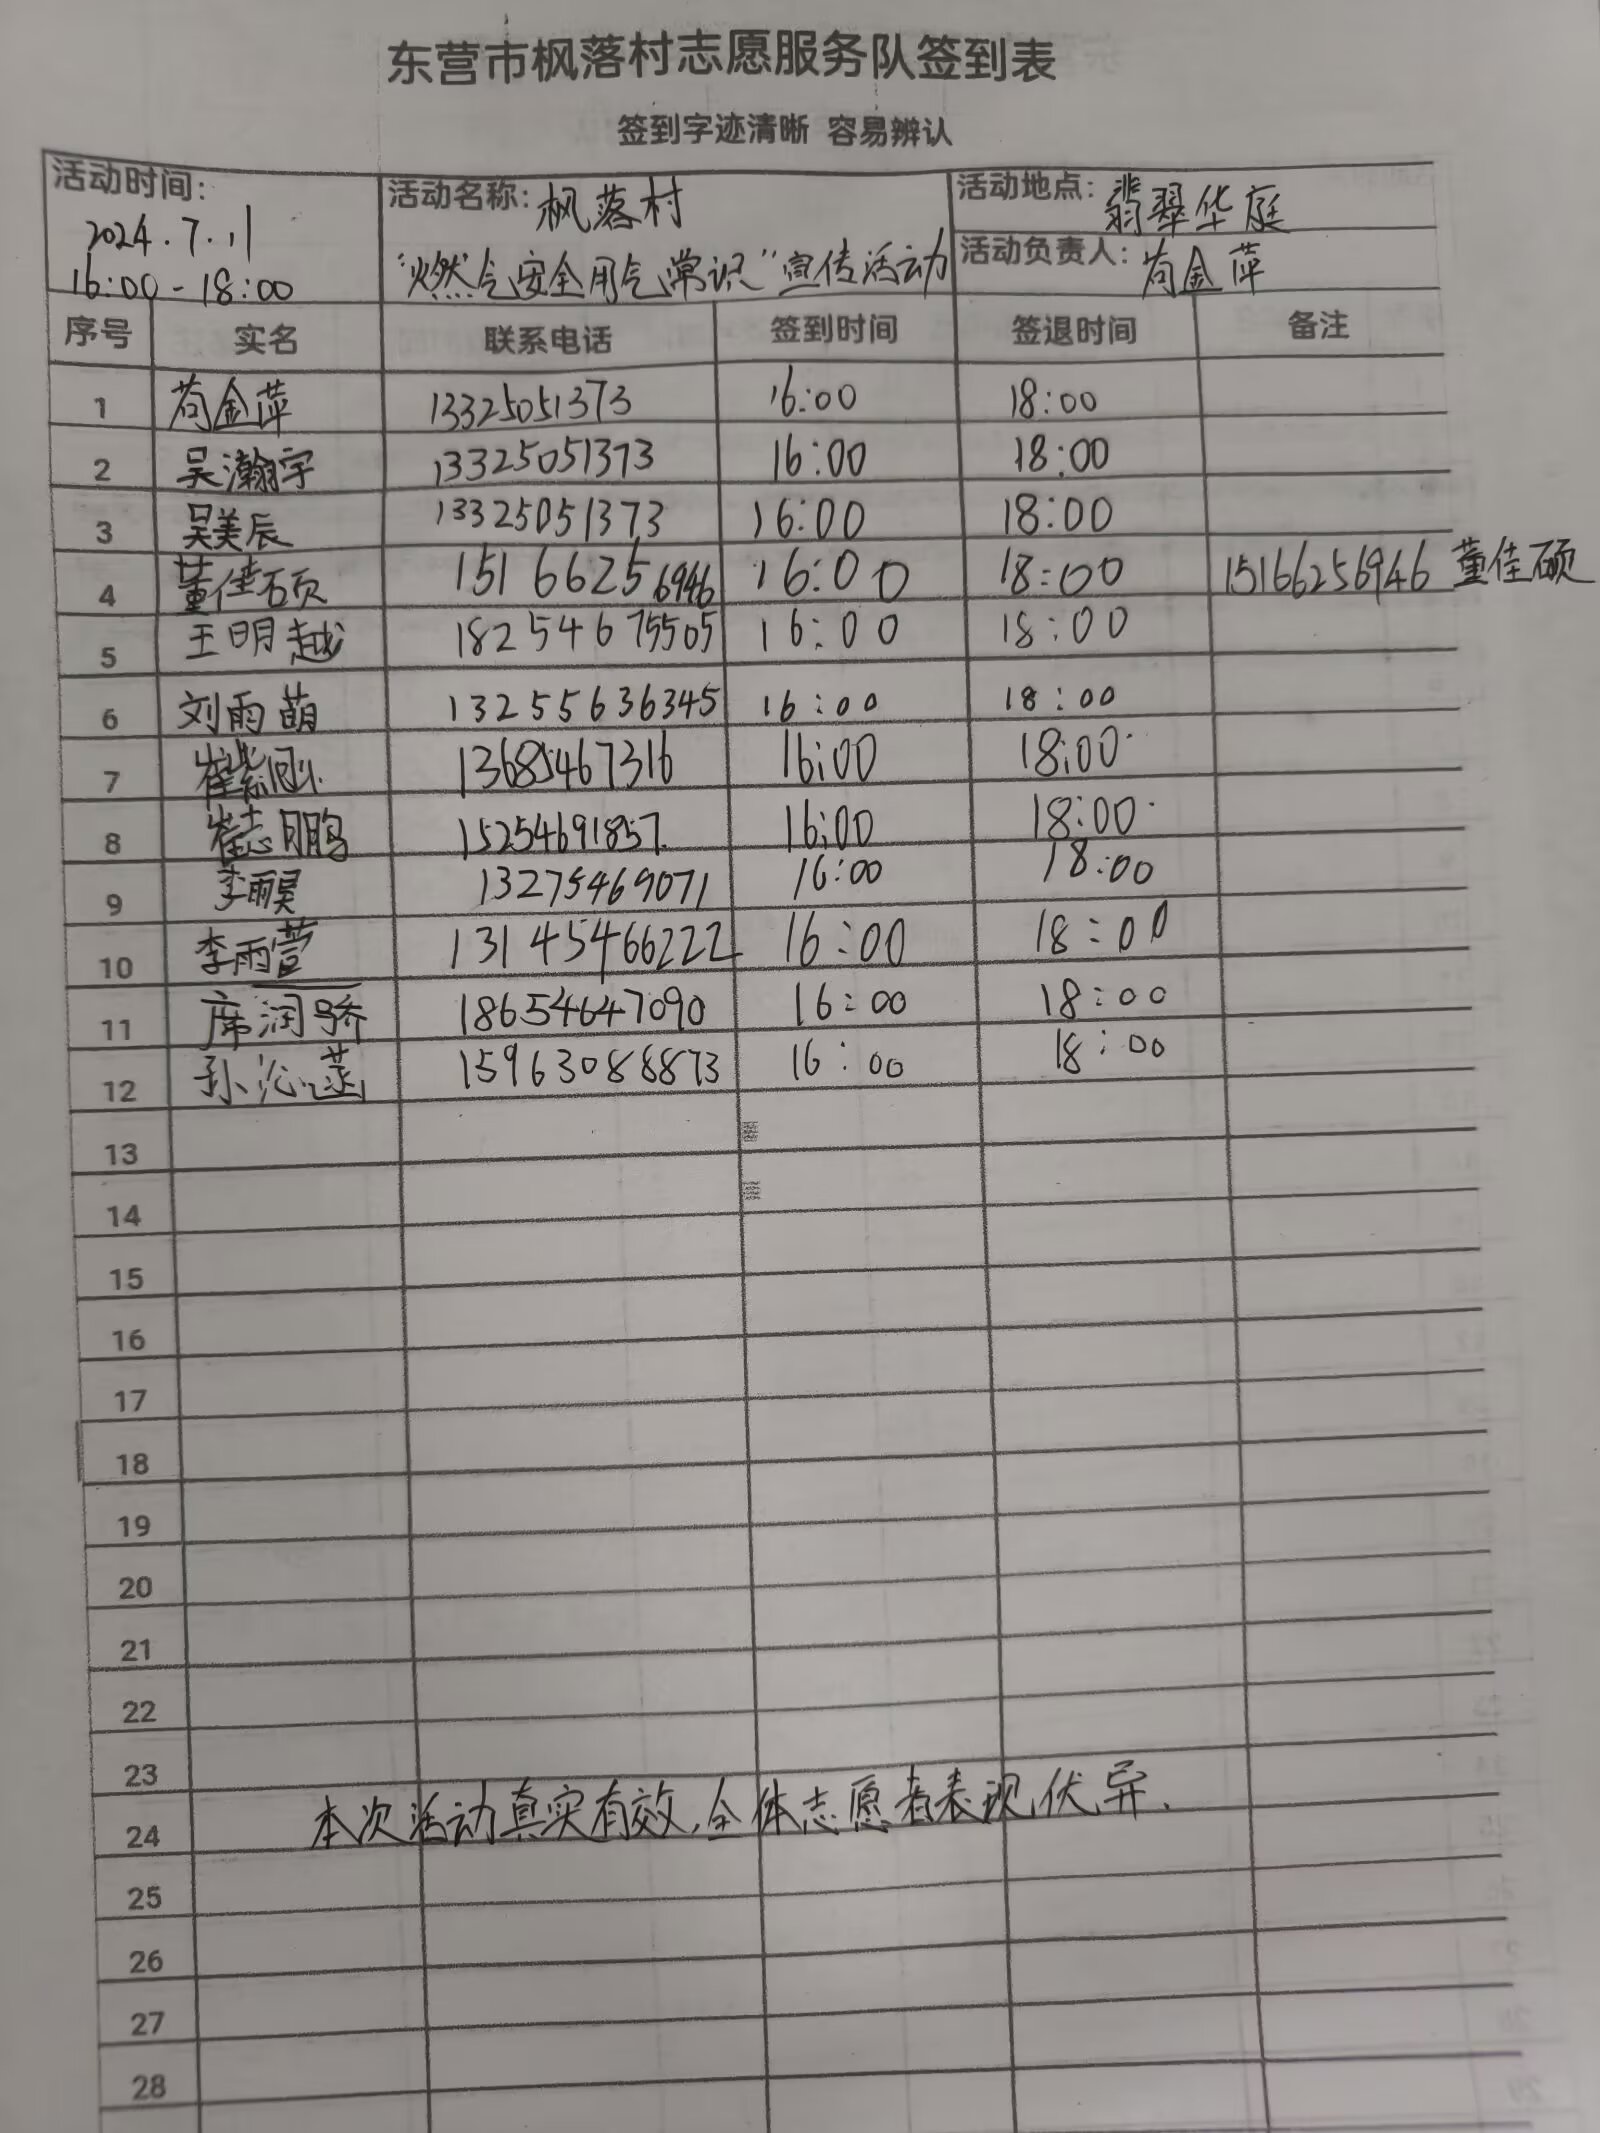 东营市枫落村志愿服务队签到表
签到字迹清晰 容易辨认
活动时间: 2024.7.11 16:00-18:00
活动名称: 枫落村 “燃气安全用气常识”宣传活动
活动地点: 翡翠华庭
活动负责人: 苟金萍
序号 实名 联系电话 签到时间 签退时间 备注
1 苟金萍 13325051373 16:00 18:00
2 吴瀚宇 13325051373 16:00 18:00
3 吴美辰 13325051373 16:00 18:00
4 董佳硕 15166256946 16:00 18:00 15166256946 董佳硕
5 王明越 18254675505 16:00 18:00
6 刘雨萌 13255636345 16:00 18:00
7 崔紫涵 13685467316 16:00 18:00
8 崔志鹏 15254691857. 16:00 18:00
9 李雨昊 13275469071 16:00 18:00
10 李雨萱 13145466222 16:00 18:00
11 席润骄 18654647090 16:00 18:00
12 孙沁涵 15963088873 16:00 18:00
13
14
15
16
17
18
19
20
21
22
23
24 本次活动真实有效,全体志愿者表现优异.
25
26
27
28